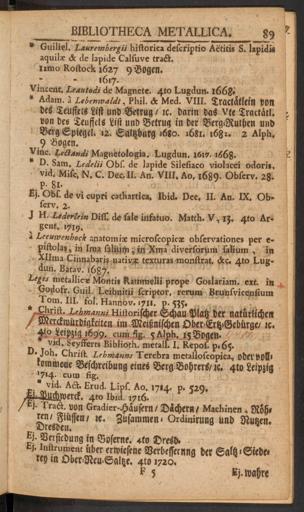 BIBLIOTHECA METALLICA. 89
* Guiliel. Laurembergii historica descriptio Aëtitis S. lapidis
aquilæ & de lapide Calsuve tract.
12mo Rostock 1627 9 Bogen.
- - 1617.
Vincent. Leautodi de Magnete. 4to Lugdun. 1668.
* Adam. à Lebenwaldt, Phil. & Med. VIII. Tractätlein von
des Teuffels List und Betrug; ꝛc. darin das Vte Tractätl.
von des Teuffels List und Betrug in der Berg-Ruthen und
Berg Spiegel. 12. Saltzburg 1680. 1681. 1682. 2 Alph.
9 Bogen.
Vinc. Leotaudi Magnetologia. Lugdun. 1617. 1668.
* D. Sam. Ledelii Obs. de lapide Silesiaco violacei odoris.
vid. Misc. N. C. Dec. II. An. VIII, Ao, 1689. Observ. 28.
p. 81.
Ej. Obs. de vi cupri cathartica, Ibid. Dec. II. An. IX. Ob-
serv. 2.
J H. Lederlein Diss. de sale infatuo. Match. V, 13. 4to Ar-
gent. 1719.
à Leeuwenhoek anatomiæ microscopicæ observationes per e-
pistolas, in Ima salium, in Xma diversorum salium, in
XIIma Cinnabaris nativæ texturas monstrat. &c. 4to Lug-
dun. Batav. 1687.
Leges metallicæ Montis Rammelii prope Goslariam. ext. in
Godofr. Guil. Leibnitii scriptor. rerum Brunsvicensium
Tom. III. fol. Hannov. 1711. p. 535.
Christ. Lehmanni Historischer Schau Platz der natürlichen
Merckwürdigkeiten im Meißnischen Ober-Ertz-Gebürge; ꝛc.
4to Leipzig 1699. cum fig. 5 Alph. 15 Bogen.
vid. Seysters Biblioth. metall. I. Repos. p. 65.
D. Joh. Christ. Lehmanns Terebra metalloscopica, oder voll-
kommene Beschreibung eines Berg Bohrers; ꝛc. 4to Leipzig
1714. cum fig.
* vid. Act. Erud. Lips. Ao. 1714. p. 529.
Ej. Puchwerck. 4to Ibid. 1716.
Ej. Tract. von Gradier-Häusern / Dächern / Machinen, Röh-
ren / Flüssen; ꝛc. Zusammen-Ordinirung und Nutzen.
Dresden.
Ej. Versiedung in Boserne. 4to Dresd.
Ej. Instrument über erwiesene Verbesserung der Saltz-Siede-
rey in Ober-Neu-Saltze. 4to 1720.
F 5 Ej. wahre